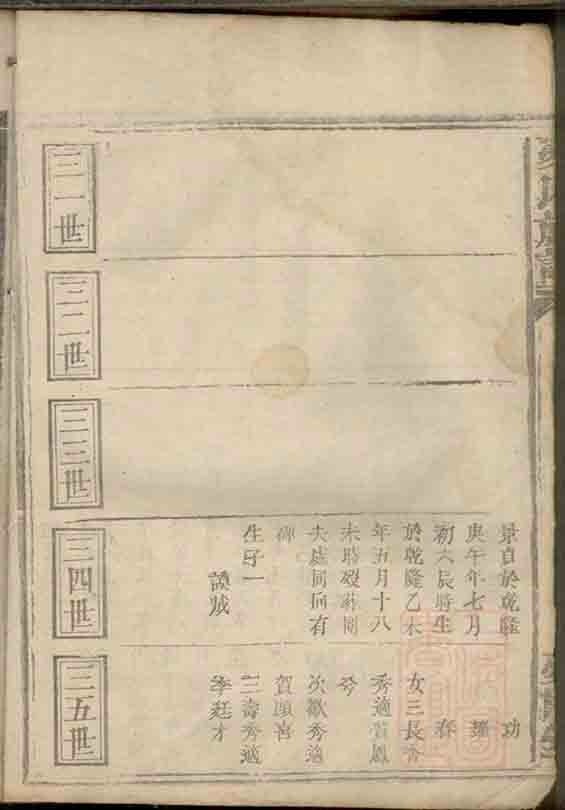 景貞於乾隆
庚午年七月
初六辰時生
於乾隆乙未
年五月十八
未時歿葬同
夫處同向有
碑
生子一
讀斌
功
雄
春
女三長香
秀適賀鳳
兮
次歡秀適
賀願喜
三壽秀適
李廷才
三一世
三二世
三三世
三四世
三五世